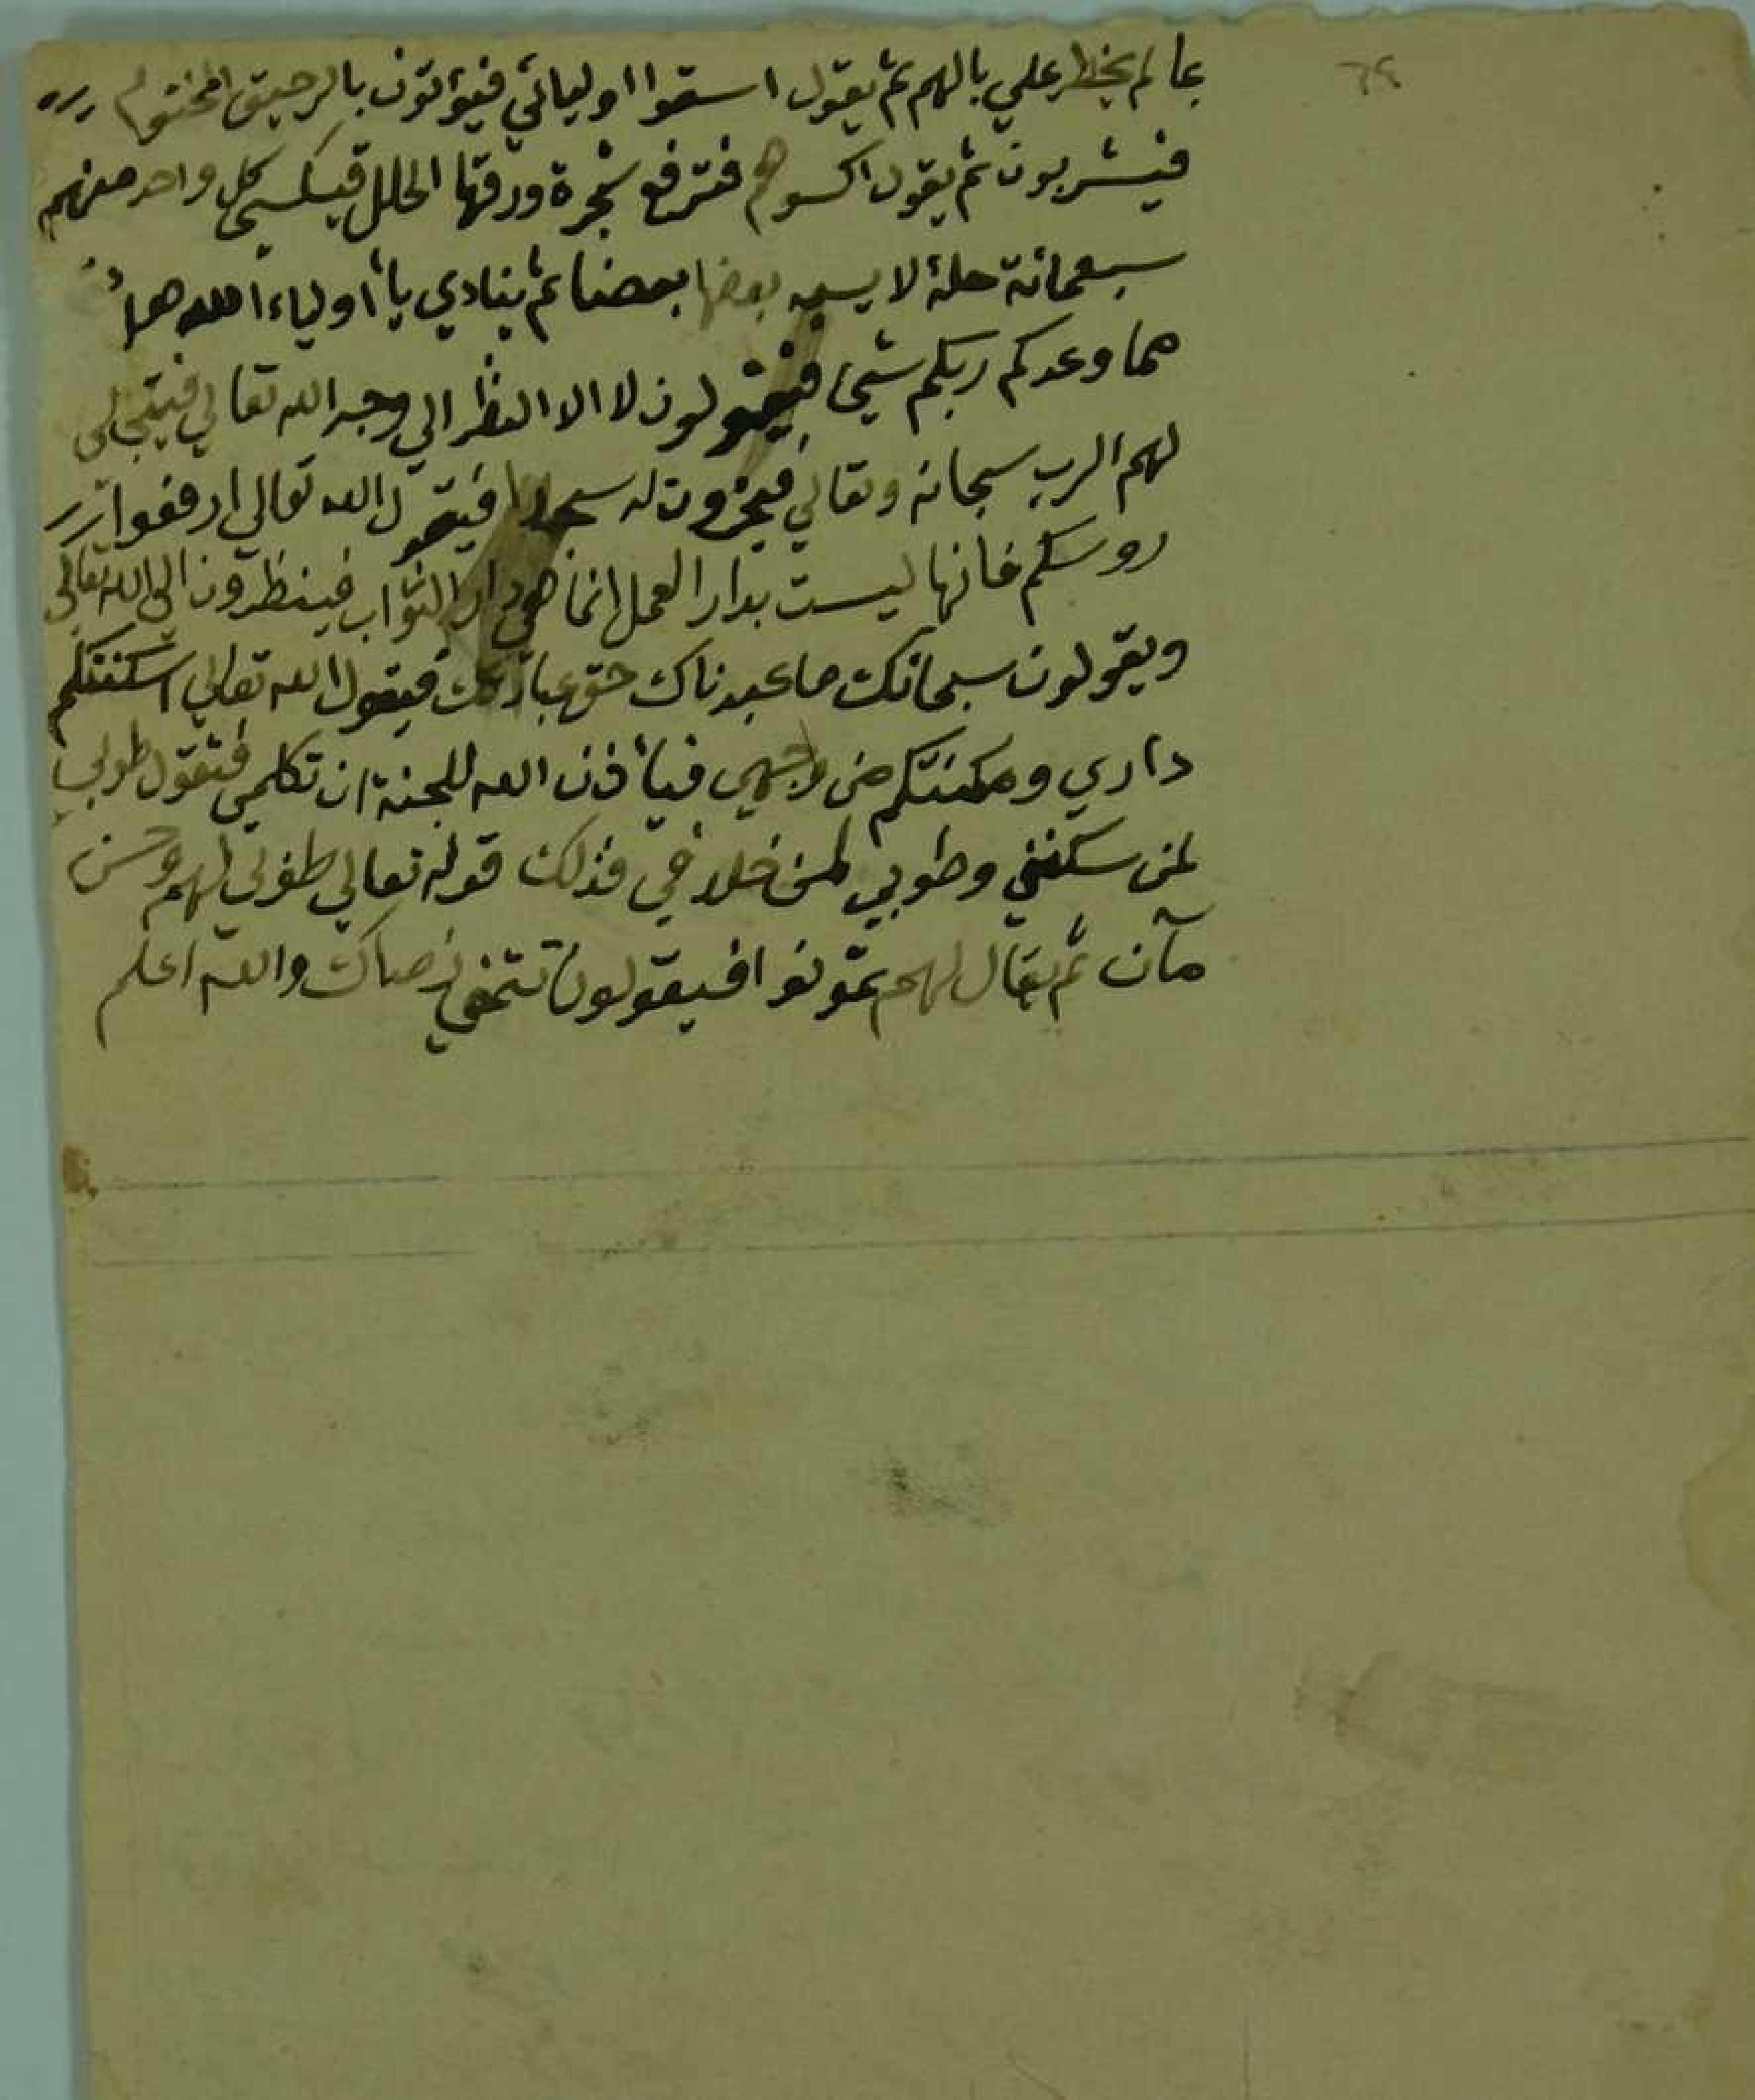 ٦٩
بما لم يخطر علي بالهم ثم يقول اسقوا اوليائي فيؤتون بالرحيق المختوم
فيشربون ثم يقول اكسوهم فترفع شجرة ورقها الحلل فيكسي كل واحد منهم
سبعمائة حلة لا يسبه بعضها بعضا ثم ينادي يا أولياء الله هل
مما وعدكم ربكم شيئ فيقولون لا الا النظر الي وجه الله تعالي فيتجلي
لهم الرب سبحانه وتعالي فيخرون له سجدا فيقول الله تعالي ارفعوا
روسكم فانها ليست بدار العمل انما هي دار الثواب فينظرون الي الله تعالي
ويقولون سبحانك ما عبدناك حق عبادتك فيقول الله تعالي اسكنتكم
داري ومكنتكم من وجهي فيأذن الله للجنة ان تكلمي فتقول طوبي
لمن سكنني وطوبي لمن خلد في فذلك قوله تعالي طوبي لهم وحسن
مآن ثم يقال لهم تمنوا فيقولون نتمني رضاك والله اعلم